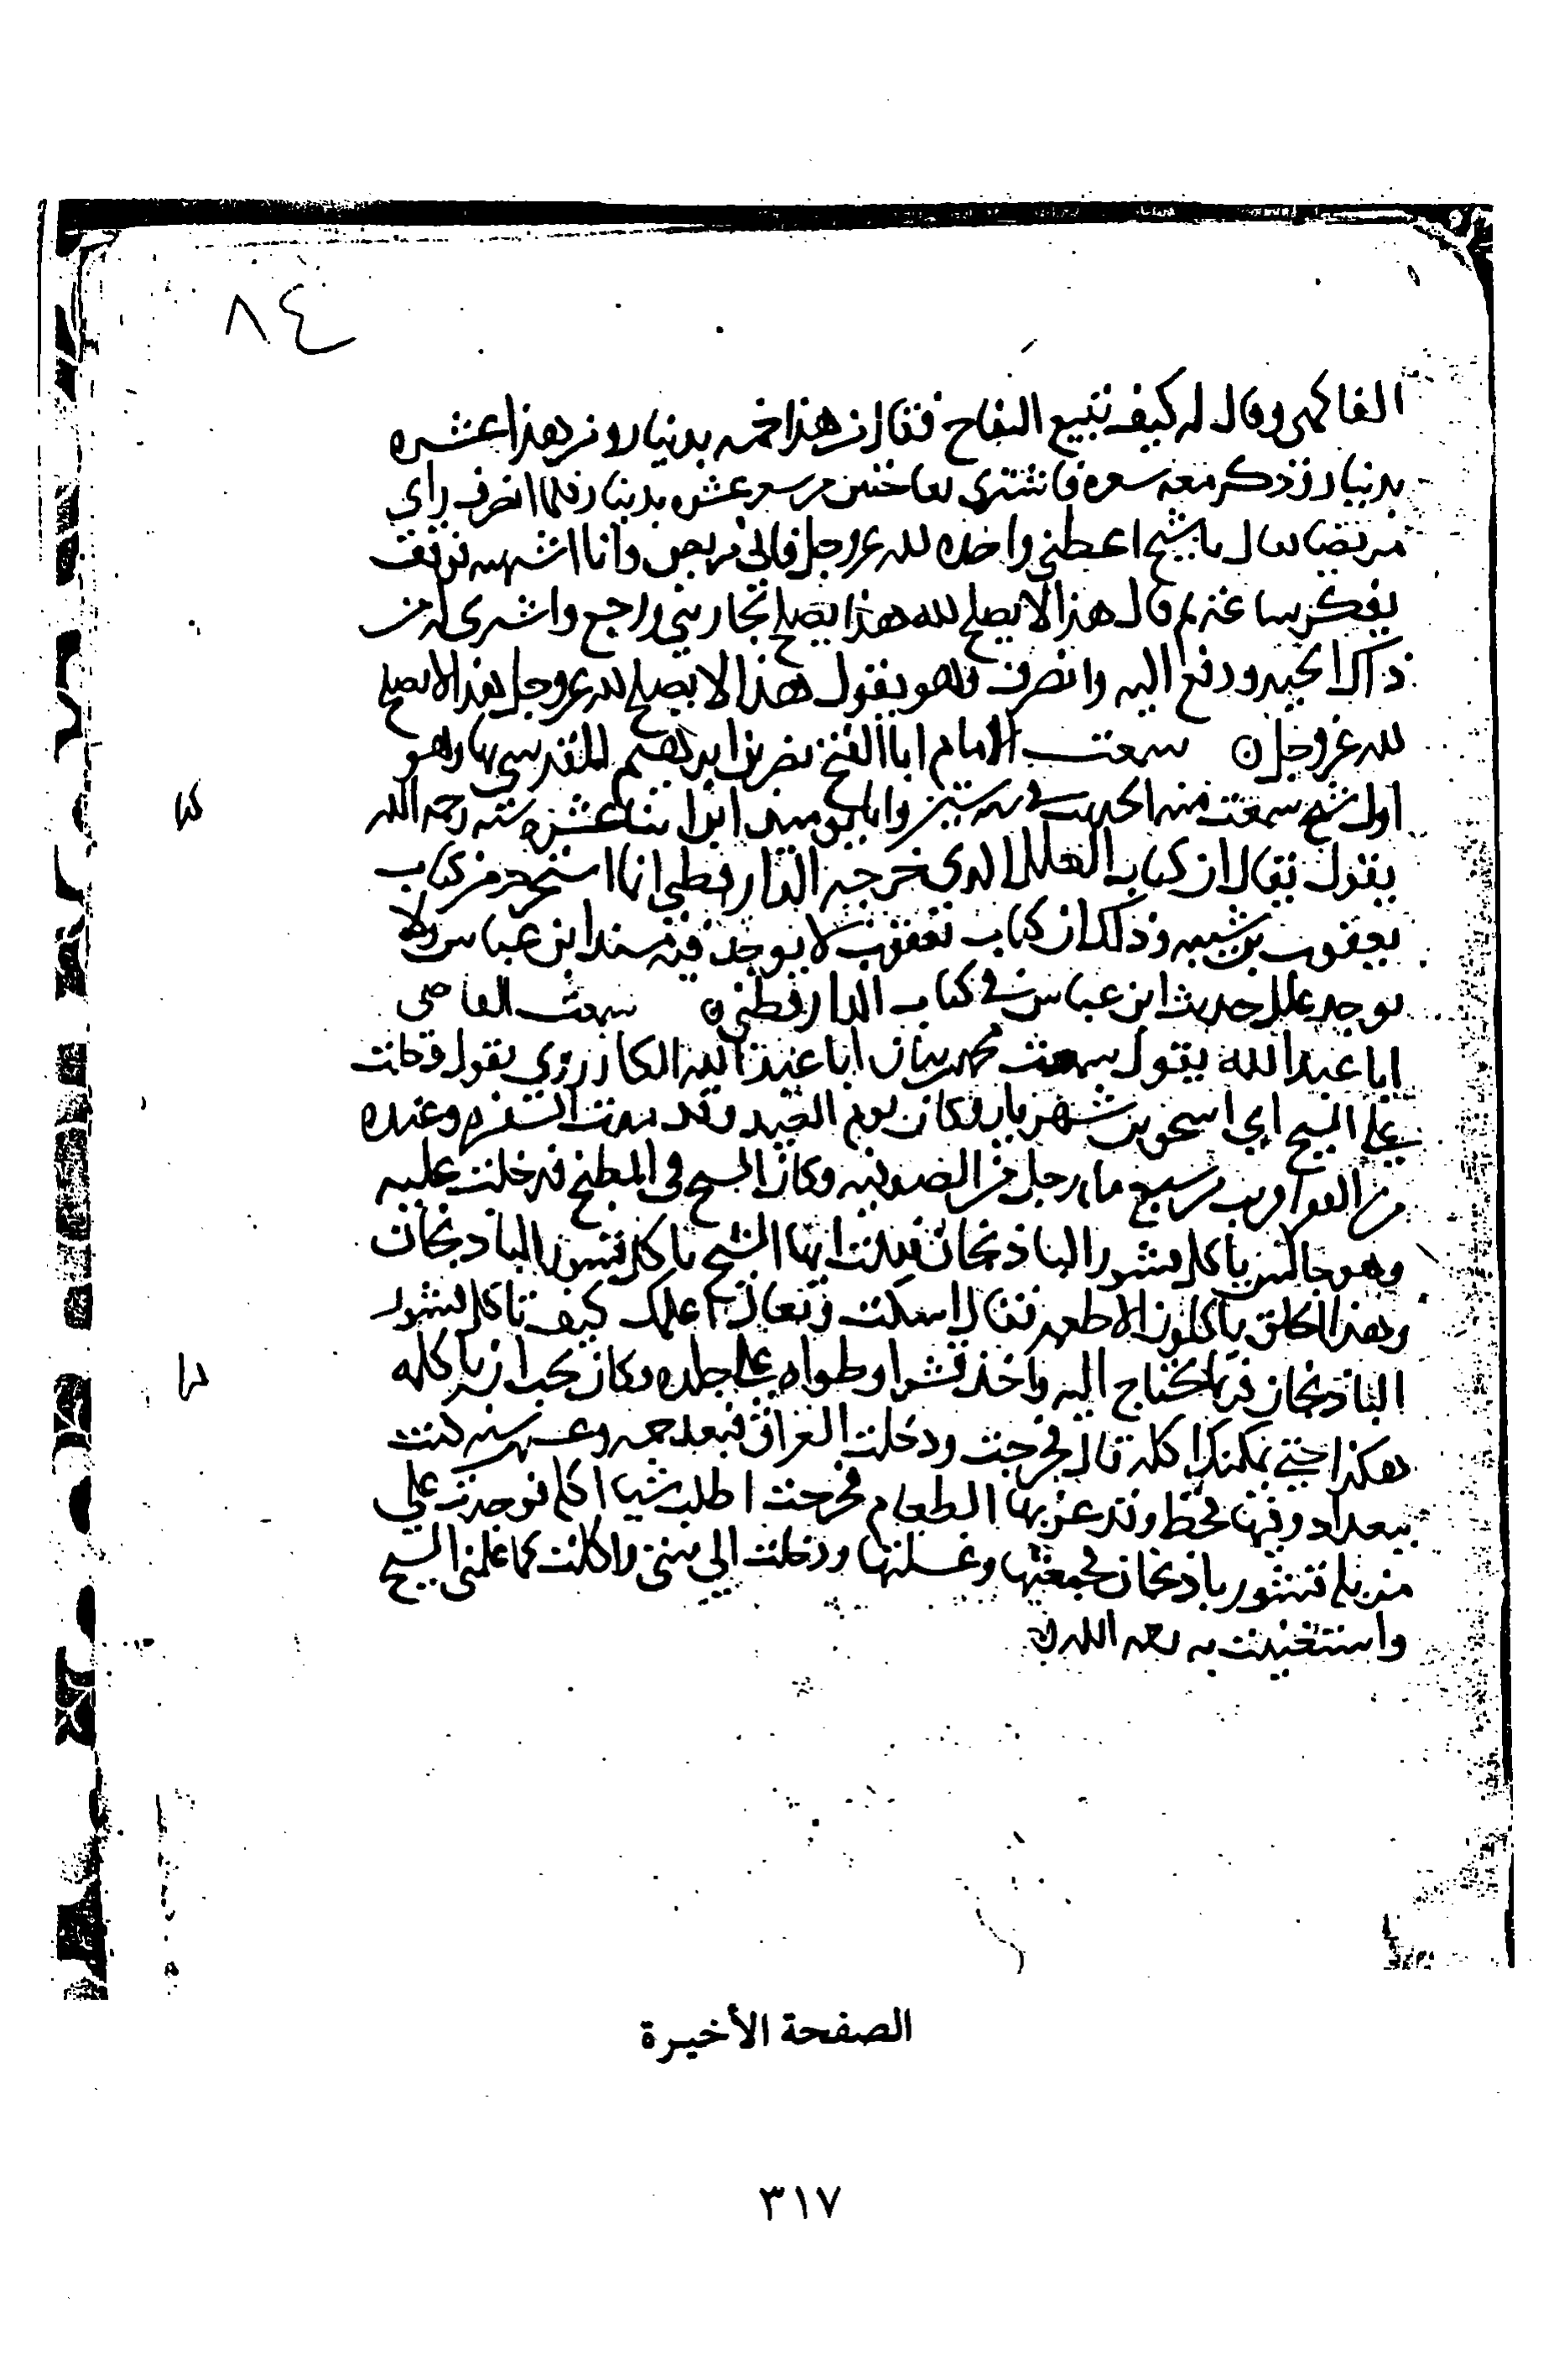 ٨٤
الفاكهي وقال له كيف تبيع التفاح فقال من هذا خمسه بدينار ومن هذا عشره
بدينار وذكر معه سعره فاشترى تفاحتين من سعر عشره بدينار فلما انصرف راي
مريضا فقال يا شيخ اعطني واحده لله عز وجل فاني مريض وانا اشتهيه فوقف
يفكر ساعة ثم قال هذا لا يصلح لله هذا يصلح ورجع واشترى له من
ذاك الجيد ودفع اليه وانصرف وهو يقول هذا لا يصلح لله عز وجل هذا لا يصلح
لله عز وجل ن سمعت الامام ابا الفتح نصر بن ابرهيم المقدسي بها وهو
اول شيخ سمعت منه الحديث في سنه ستين وانا يوميذ ابن اثنا عشره سنه رحمه الله
يقول يقال ان كتاب العلل الذي خرجه الدارقطني انما استخرجه من كتاب
يعقوب بن شيبه وذلك ان كتاب يعقوب لا يوجد فيه مسند ابن عباس ولا
يوجد علل حديث ابن عباس في كتاب الدارقطني ن سمعت القاضي
ابا عبد الله يقول سمعت محمد بن بيان ابا عبد الله الكازروني يقول دخلت
علي الشيخ ابي اسحق بن شهريار وكان يوم العيد وقد مدت السفره وعنده
من الفقرا قريب من سبع مايه رجل من الصوفيه وكان الشيخ في المطبخ فدخلت عليه
وهو جالس ياكل قشور الباذنجان فقلت ايها الشيخ تاكل قشور الباذنجان
وهذا الخلق ياكلون الاطعمه فقال اسكت وتعال اعلمك كيف تاكل قشور
الباذنجان فربما تحتاج اليه واخذ قشرا وطواه علي جلده وكان يجب ان ياكله
هكذا حتي يمكنك اكله قال فخرجت ودخلت العراق فبعد خمسه وعشرين سنه كنت
ببغداد وفيها قحط وقد عز بها الطعام فخرجت اطلب شيا اكله فوجدت علي
مزبله قشور باذنجان فجمعتها وغسلتها ودخلت الي بيتي واكلت كما علمني الشيخ
واستغنيت به رحمه الله ن
الصفحة الأخيرة
٣١٧